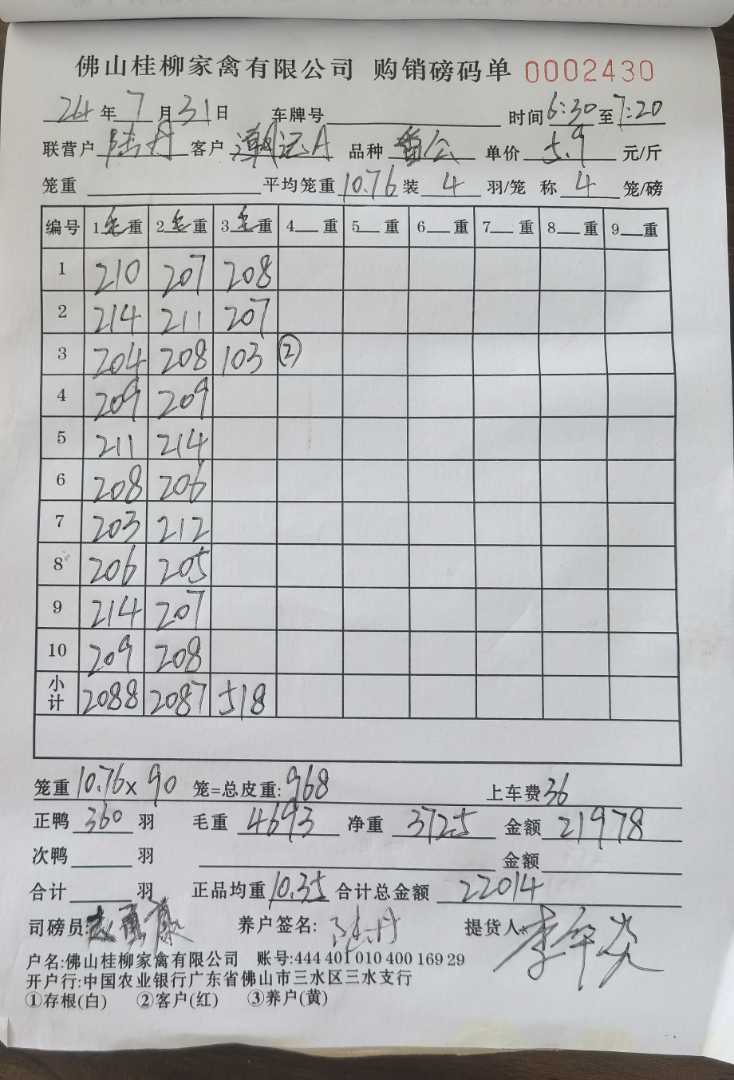 佛山桂柳家禽有限公司 购销磅码单 0002430
24年7月31日 车牌号 时间6:30至7:20
联营户 陆丹 客户 潮记A 品种 公 单价 5.9 元/斤
笼重 平均笼重10.76 装 4 羽/笼 称 4 笼/磅
编号 1毛重 2毛重 3毛重 4 重 5 重 6 重 7 重 8 重 9 重
1 210 207 208
2 214 211 207
3 204 208 103 ②
4 209 209
5 211 214
6 208 206
7 203 212
8 206 205
9 214 207
10 209 208
小计 2088 2087 518
笼重10.76×90 笼=总皮重:968 上车费36
正鸭 360 羽 毛重 4693 净重 3725 金额 21978
次鸭 羽 金额
合计 羽 正品均重10.35 合计总金额 22014
司磅员: 养户签名: 陆丹 提货人: 李
户名:佛山桂柳家禽有限公司 账号:444 401 010 400 169 29
开户行:中国农业银行广东省佛山市三水区三水支行
①存根(白) ②客户(红) ③养户(黄)